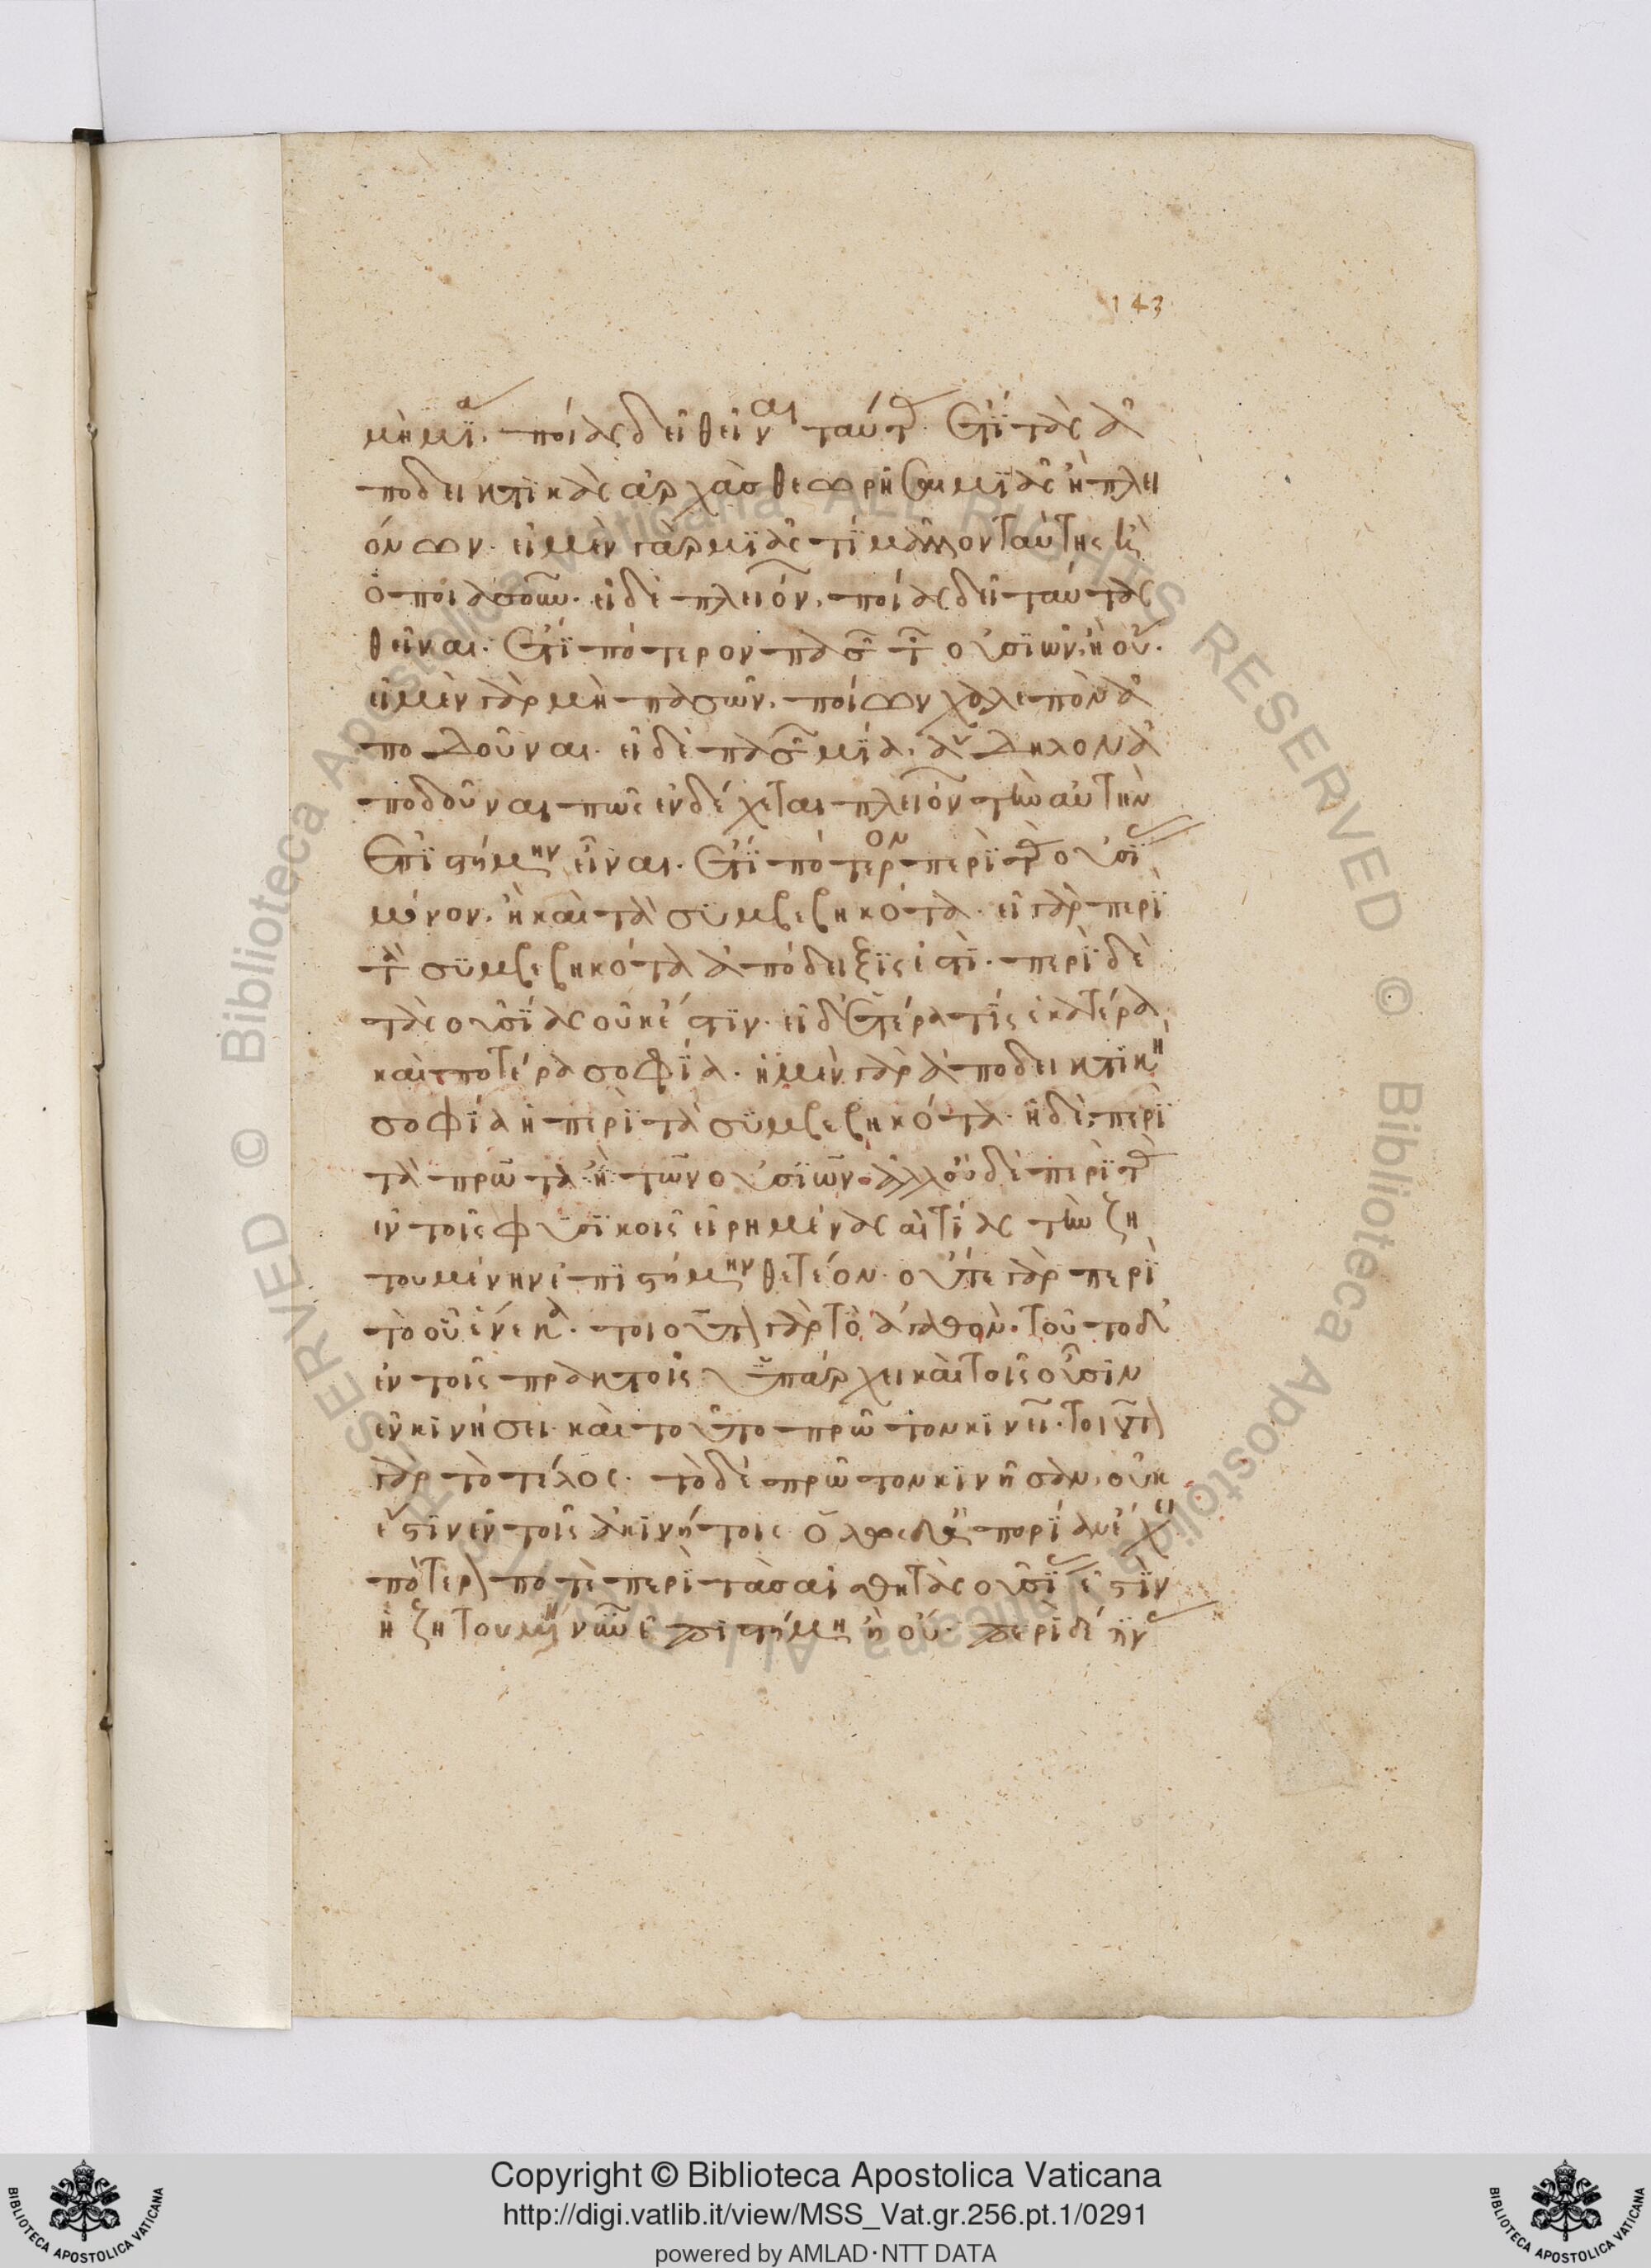 143
μὴ μία. ποίας δεῖ θεῖναι ταύτας. ἔτι τὰς ἀ
ποδεικτικὰς ἀρχὰς θεωρῆσαι μιᾶς ἢ πλει
όνων. εἰ μὲν γὰρ μιᾶς τί μᾶλλον ταύτης ἢ
ὁποιασοῦν. εἰ δὲ πλειόνων, ποίας δεῖ ταύτας
θεῖναι. ἔτι πότερον πασῶν τῶν οὐσιῶν, ἢ οὔ.
εἰ μὲν γὰρ μὴ πασῶν. ποίων χαλεπὸν ἀ
ποδοῦναι. εἰ δὲ πασῶν μία. ἄδηλον ἀ
ποδοῦναι πῶς ἐνδέχεται πλειόνων τὴν αὐτὴν
ἐπιστήμην εἶναι. ἔτι πότερον περὶ τὰς οὐσίας
μόνον. ἢ καὶ τὰ συμβεβηκότα. εἰ γὰρ περὶ
τὰ συμβεβηκότα ἀπόδειξις ἐστὶ. περὶ δὲ
τὰς οὐσίας οὐκ ἔστιν. εἰ δ' ἑτέρα τίς ἑκατέρα,
καὶ ποτέρα σοφία. ἡ μὲν γὰρ ἀποδεικτικὴ
σοφία ἡ περὶ τὰ συμβεβηκότα. ἡ δὲ περὶ
τὰ πρῶτα ἡ τῶν οὐσιῶν. ἀλλ' οὐδὲ περὶ τὰς
ἐν τοῖς φυσικοῖς εἰρημένας αἰτίας τὴν ζη
τουμένην ἐπιστήμην θετέον. οὔτε γὰρ περὶ
τὸ οὗ ἕνεκα. τοιοῦτον γὰρ τὸ ἀγαθὸν. τοῦτο δ'
ἐν τοῖς πρακτοῖς ὑπάρχει καὶ τοῖς οὖσιν
ἐν κινήσει. καὶ τοῦτο πρῶτον κινεῖ. τοιοῦτον
γὰρ τὸ τέλος. τὸ δὲ πρῶτον κινῆσαν, οὐκ
ἔστιν ἐν τοῖς ἀκινήτοις ὅλως δ' ἀπορίαν ἔχει
πότερον ποτὲ περὶ τὰς αἰσθητὰς οὐσίας ἐστὶν
ἡ ζητουμένη νῦν ἐπιστήμη ἢ οὔ. περὶ δέ τινας
Copyright © Biblioteca Apostolica Vaticana
http://digi.vatlib.it/view/MSS_Vat.gr.256.pt.1/0291
powered by AMLAD·NTT DATA